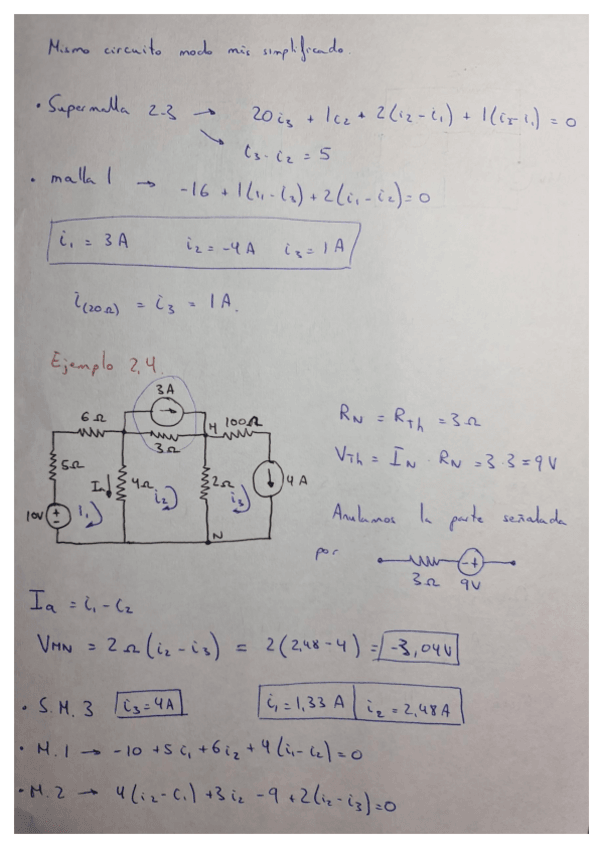 Mismo circuito modo más simplificado.
• Supermalla 2-3 → 20i₃ + 1i₂ + 2(i₂-i₁) + 1(i₃-i₁) = 0
↘ i₃ - i₂ = 5
• malla 1 → -16 + 1(i₁-i₃) + 2(i₁-i₂) = 0
i₁ = 3 A i₂ = -4 A i₃ = 1 A
i(20Ω) = i₃ = 1 A.
Ejemplo 2,4.
3A
6Ω
M
100Ω
3Ω
5Ω
Ia
4Ω
i₂
2Ω
i₃
4A
10V
i₁
N
R_N = R_Th = 3Ω
V_Th = I_N · R_N = 3·3 = 9V
Anulamos la parte señalada
por
3Ω 9V
Ia = i₁ - i₂
V_MN = 2Ω(i₂-i₃) = 2(2,48-4) = -3,04V
• S.M. 3 i₃ = 4A i₁ = 1,33 A i₂ = 2,48A
• M.1 → -10 + 5i₁ + 6i₂ + 4(i₁-i₂) = 0
• M.2 → 4(i₂-i₁) + 3i₂ - 9 + 2(i₂-i₃) = 0